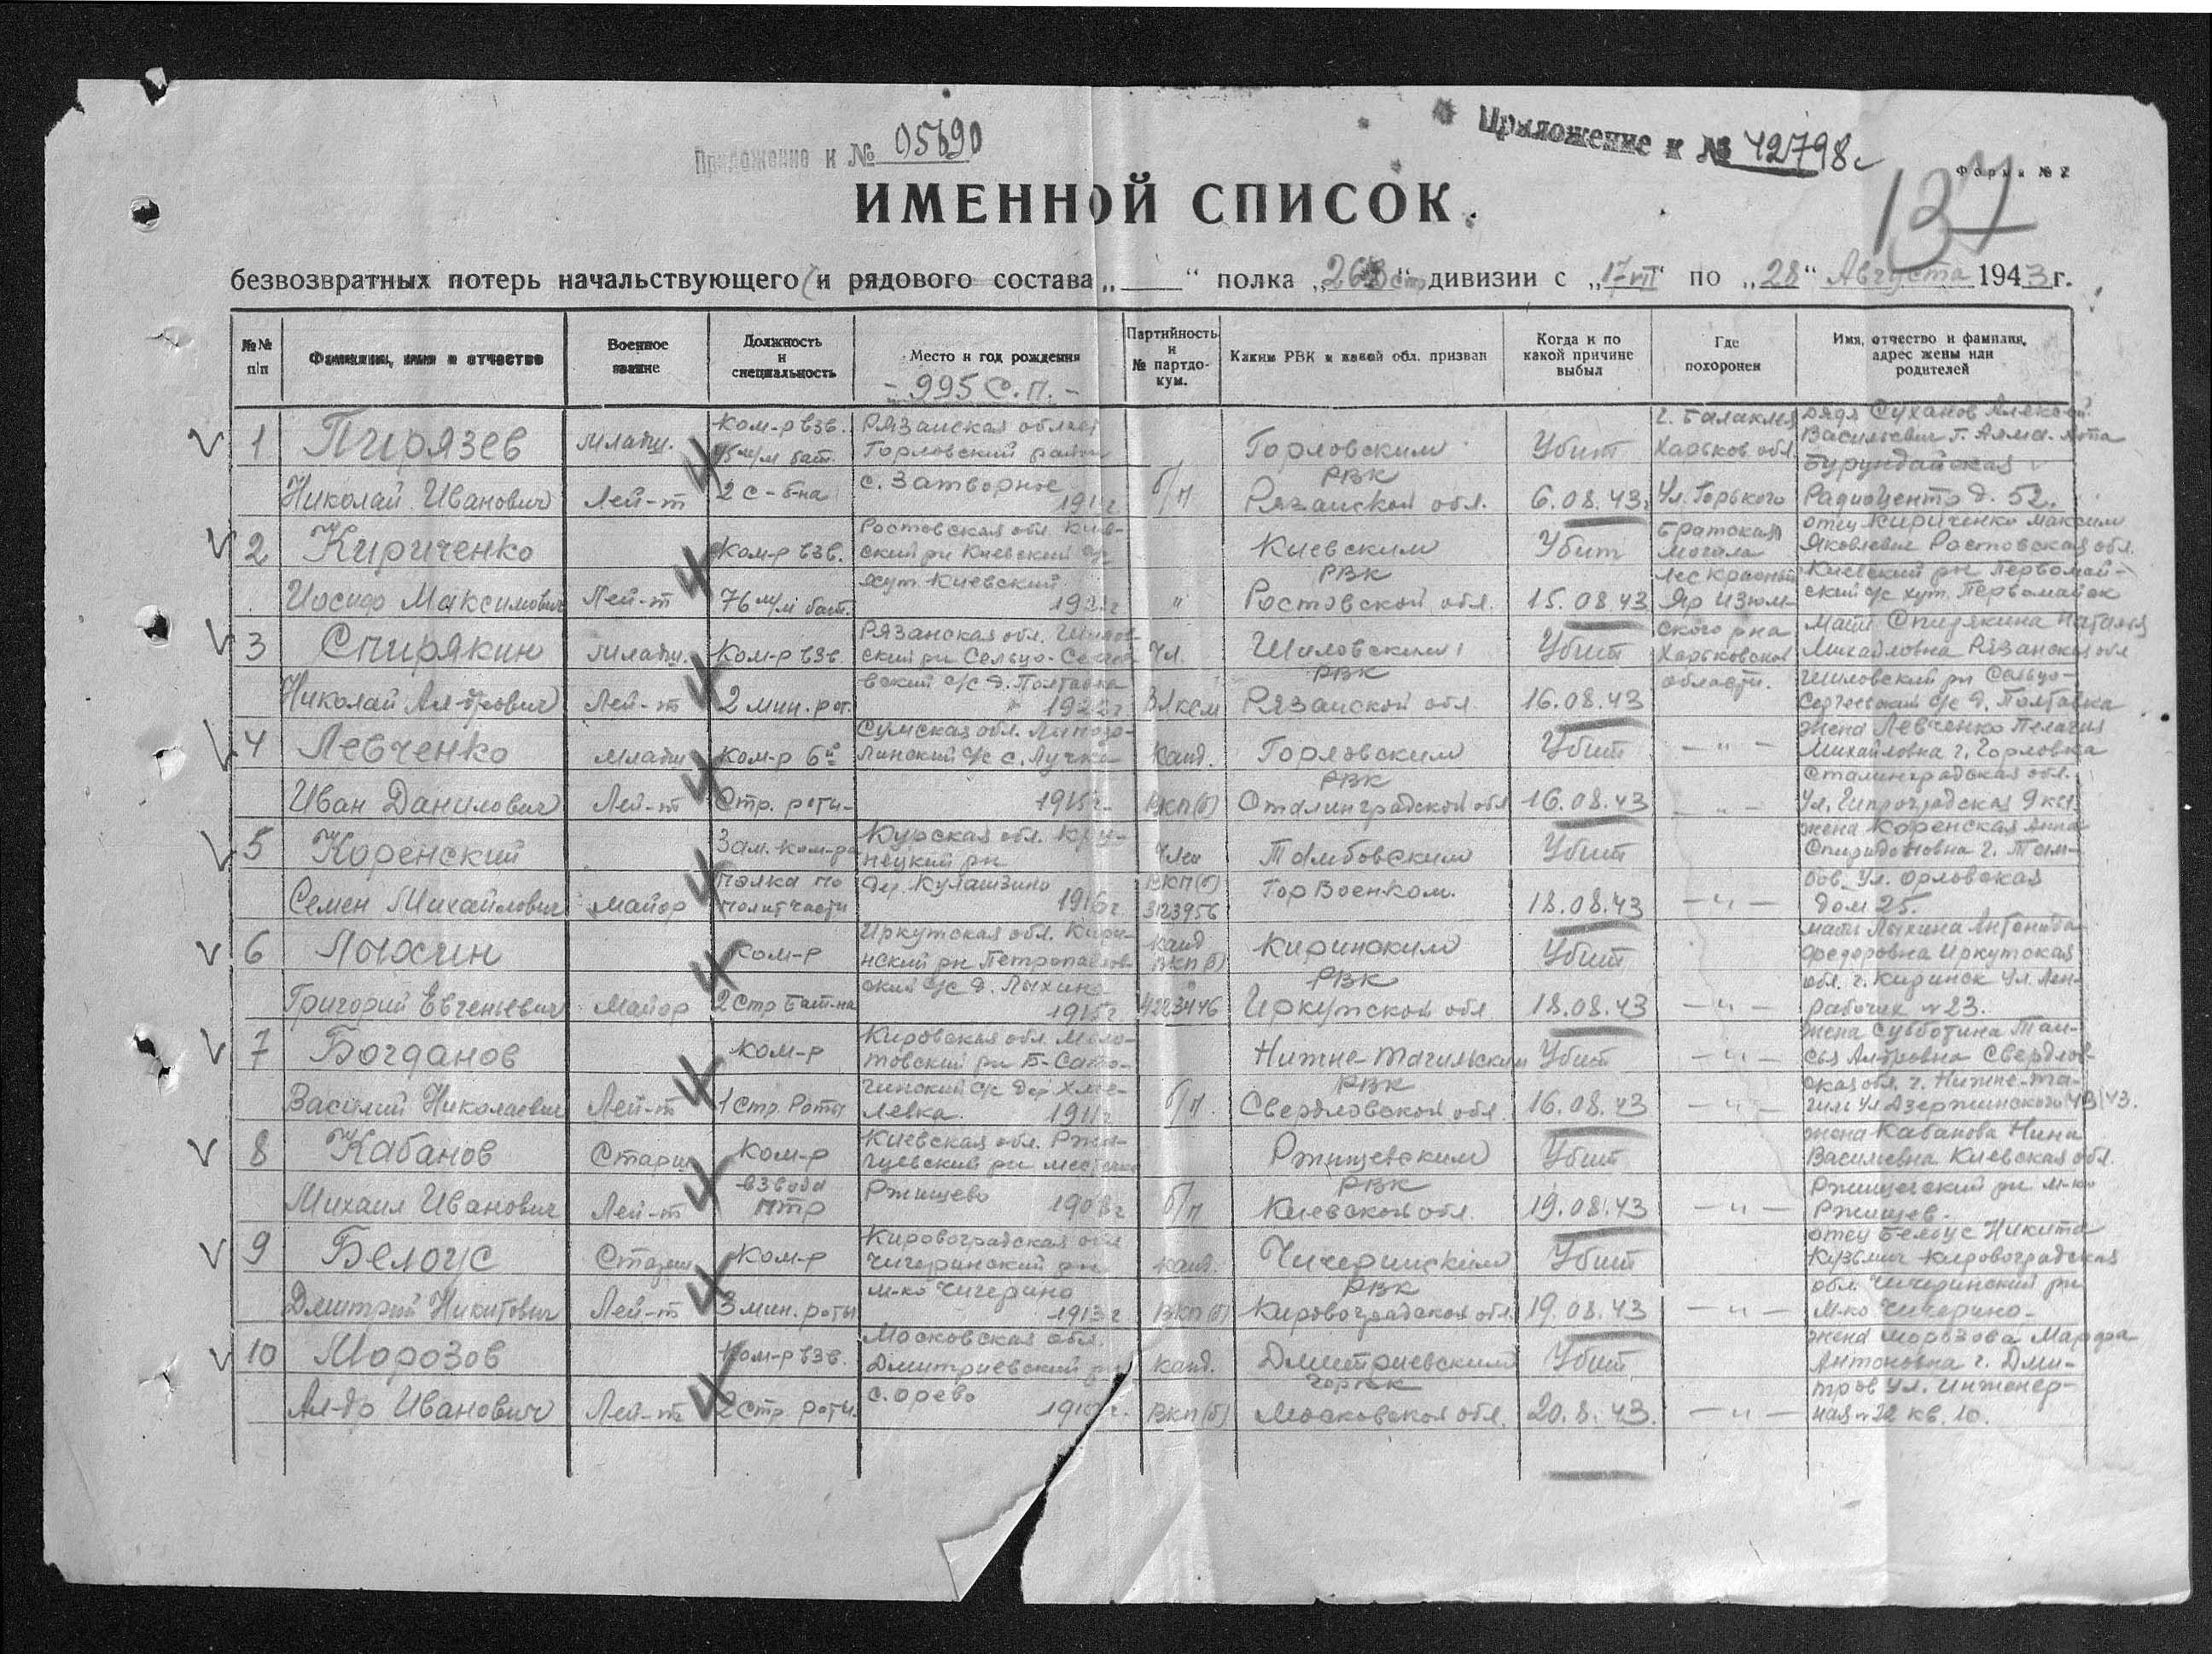 Приложение к № 05690
Приложение к № 42798с
Форма № 2
137
ИМЕННОЙ СПИСОК
безвозвратных потерь начальствующего и рядового состава „ “ полка „ “ дивизии с „ “ по „28“ Августа 1943 г.
№№ п/п
Фамилия, имя и отчество
Военное звание
Должность и специальность
Место и год рождения
Партийность и № партдокум.
Каким РВК и какой обл. призван
Когда и по какой причине выбыл
Где похоронен
Имя, отчество и фамилия, адрес жены или родителей
- 995 С.П. -
1 Пирязев Николай Иванович
Младш. Лей-т
Ком-р взв. 45 м/м бат. 2 с-б-на
Рязанская область Горловский район с. Затворное
б/п
Горловским РВК Рязанской обл.
Убит 6.08.43
г. Балаклея Харьков обл. Ул. Горького
дядя Суханов Алексей Васильевич г. Алма-Ата Бурундайская Радиоцентр д. 52.
2 Кириченко Иосиф Максимович
Лей-т
Ком-р взв. 76 м/м бат.
Ростовская обл. Киевский рн Киевский с/с хут. Киевский
"
Киевским РВК Ростовской обл.
Убит 15.08.43
Братская могила Лес Красный Яр Изюмского р-на Харьковской области.
отец Кириченко Максим Яковлевич Ростовская обл. Киевский рн Первомайский с/с хут. Первомайск
3 Спирякин Николай Ал-дрович
Младш. Лей-т
Ком-р взв. 2 мин. рот.
Рязанская обл. Шиловский рн Сельцо-Сергеевский с/с д. Полтавка 1922 г
Чл. ВЛКСМ
Шиловским РВК Рязанской обл
Убит 16.08.43
Мать Спирякина Наталья Михайловна Рязанская обл Шиловский рн Сельцо-Сергеевский с/с д. Полтавка
4 Левченко Иван Данилович
Младш Лей-т
Ком-р 6й Стр. роты
Сумская обл. с. Лучка 1915 г.
Канд. ВКП(б)
Горловским РВК Сталинградской обл
Убит 16.08.43
— " —
жена Левченко Пелагия Михайловна г. Горловка Сталинградская обл.
5 Коренский Семен Михайлович
Майор
Зам. Ком-ра полка по политчасти
Курская обл. рн дер. Кулашзино 1916 г.
Член ВКП(б) 3123956
Тамбовским ГорВоенком.
Убит 18.08.43
— " —
жена Коренская Анна Спиридоновна г. Тамбов Ул. Орловская дом 25.
6 Лыхин Григорий Евгеньевич
Майор
Ком-р 2 Стр Бат-на
Иркутская обл. Киринский рн Петропавловский с/с д. Лыхина 1915 г
Канд ВКП(б) 4223446
Киринским РВК Иркутской обл
Убит 18.08.43
— " —
мать Лыхина Антонида Федоровна Иркутская обл. г. Киринск Ул. Лен-рабочих № 23.
7 Богданов Василий Николаевич
Лей-т
Ком-р 1 Стр. Роты
Кировская обл. Молотовский рн дер Хмелевка. 1911 г
б/п.
Нижне-Тагильским РВК Свердловской обл.
Убит 16.08.43
— " —
жена Субботина Таисья Ал-дровна Свердловская обл. г. Нижне-Тагил Ул Дзержинского 43/43.
8 Кабанов Михаил Иванович
Старш Лей-т
Ком-р взвода ПТР
Киевская обл. Ржищевский рн местечко Ржищево 1908 г
б/п
Ржищевским РВК Киевской обл.
Убит 19.08.43
— " —
жена Кабанова Нина Васильевна Киевская обл. Ржищевский рн м-ко Ржищев.
9 Белоус Дмитрий Никитович
Старш Лей-т
Ком-р 3 мин. роты
Кировоградская обл Чигеринский рн м-ко Чигерино 1913 г
Канд. ВКП(б)
Чичеринским РВК Кировоградской обл.
Убит 19.08.43
— " —
отец Белоус Никита Кузьмич Кировоградская обл. Чичеринский рн м-ко Чичерино.
10 Морозов Ал-др Иванович
Лей-т
Ком-р взв. 2 стр. роты.
Московская обл. Дмитриевский рн с. Орево
Канд. ВКП(б)
Дмитриевским ГорВК Московской обл.
Убит 20.8.43.
— " —
жена Морозова Марфа Антоновна г. Дмитров Ул. Инженерная № 22 кв. 10.